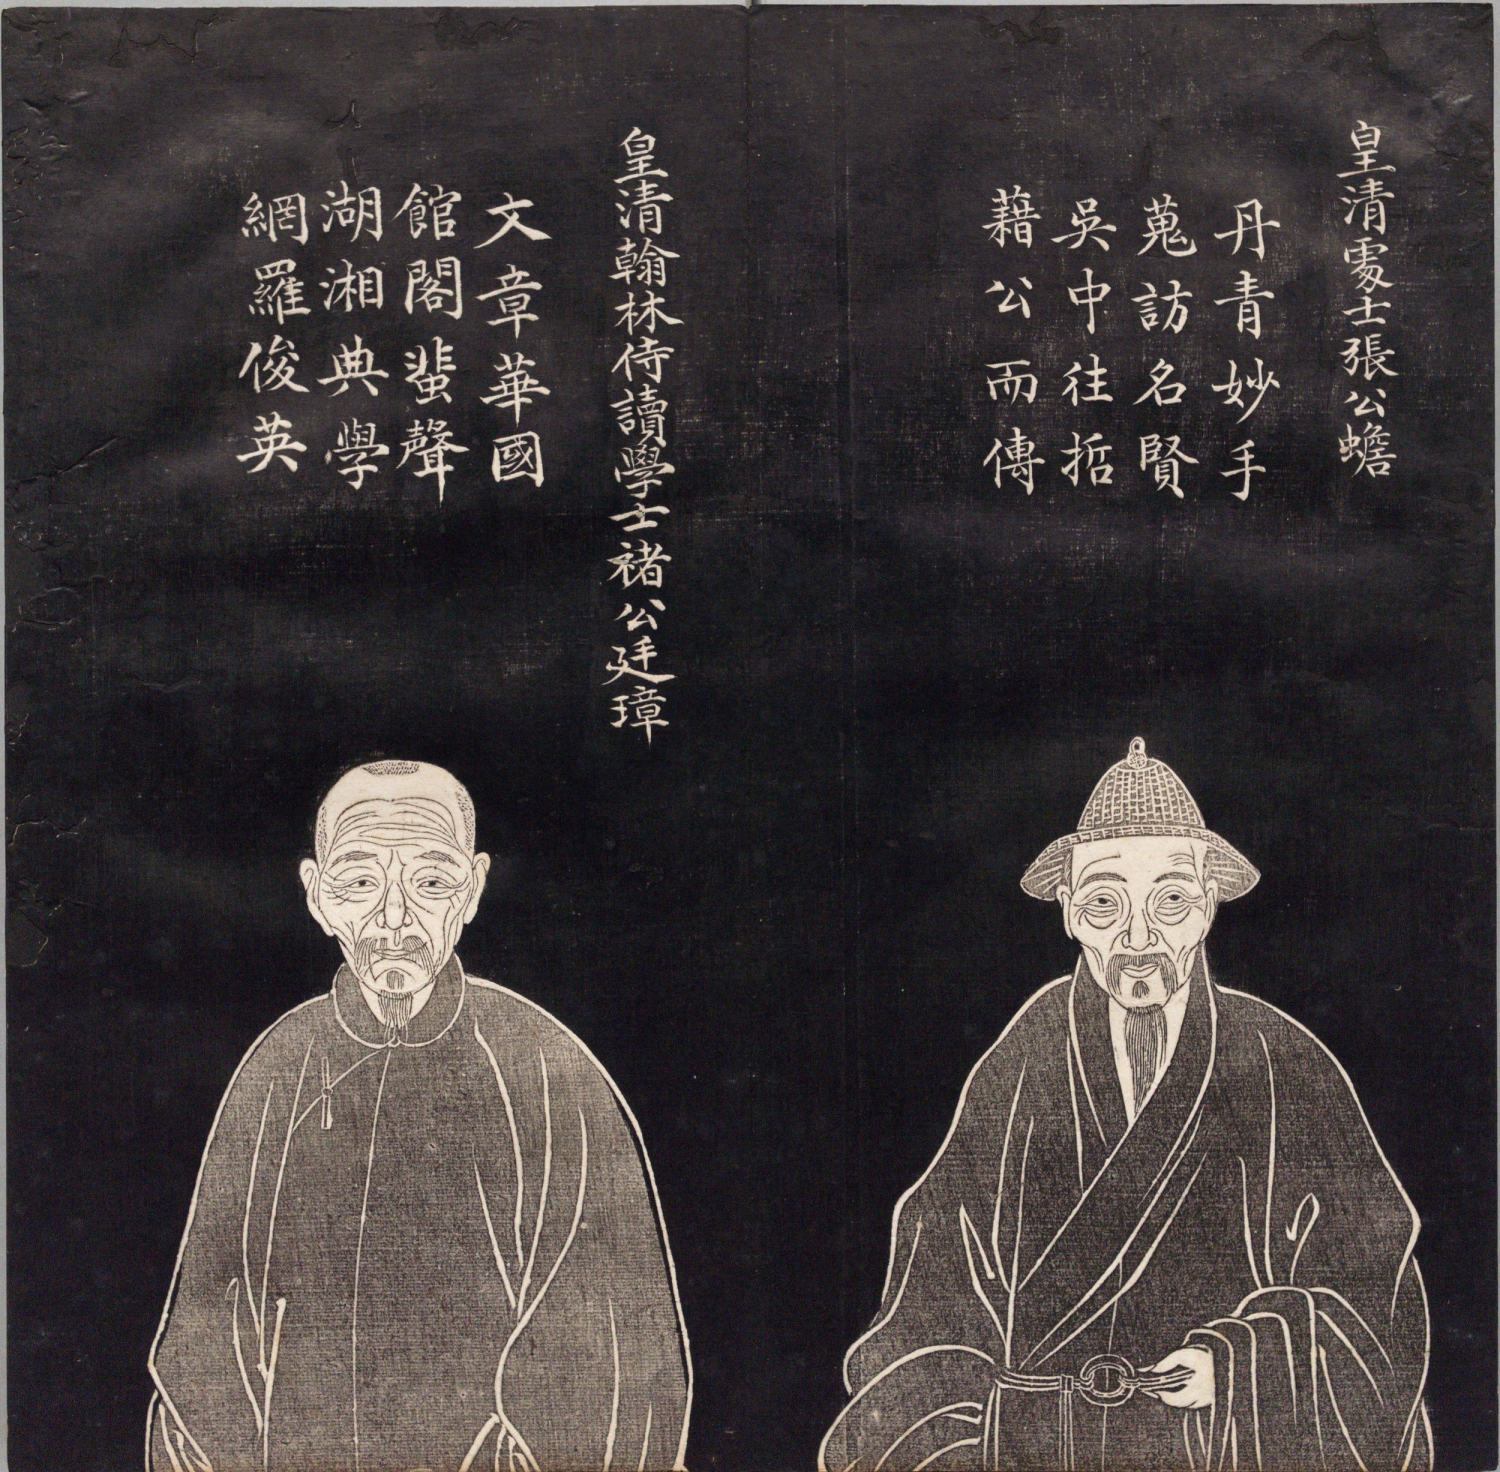 皇清處士張公蟾
丹青妙手
蒐訪名賢
吳中往哲
藉公而傳
皇清翰林侍讀學士褚公廷璋
文章華國
館閣蜚聲
湖湘典學
網羅俊英